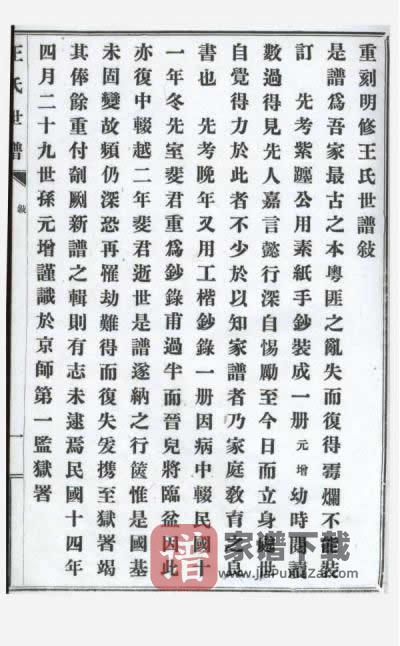 重刻明修王氏世譜敍
是譜爲吾家最古之本粵匪之亂失而復得霉爛不能裝
訂 先考紫躔公用素紙手鈔裝成一册元增幼時閱讀
數過得見先人嘉言懿行深自惕勵至今日而立身處世
自覺得力於此者不少於以知家譜者乃家庭敎育之良
書也 先考晚年又用工楷鈔錄一册因病中輟民國十
一年冬先室婁君重爲鈔錄甫過半而晉兒將臨盆因此
亦復中輟越二年婁君逝世是譜遂納之行篋惟是國基
未固變故頻仍深恐再罹劫難得而復失爰携至獄署竭
其俸餘重付剞劂新譜之輯則有志未逮焉民國十四年
四月二十九世孫元增謹識於京師第一監獄署
王氏世譜
敍
一
譜
家譜下載
www.jiaPuXiaZai.com